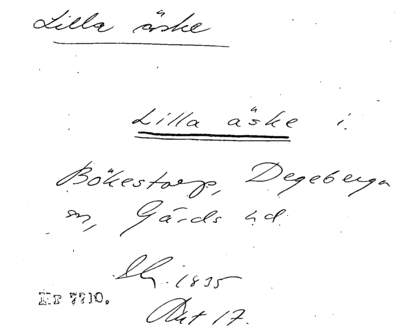 Lilla äske
Lilla äske i.
Bökestorp, Degeberga
sn, Gärds hd.
1835
Akt 17.
RF 7710.